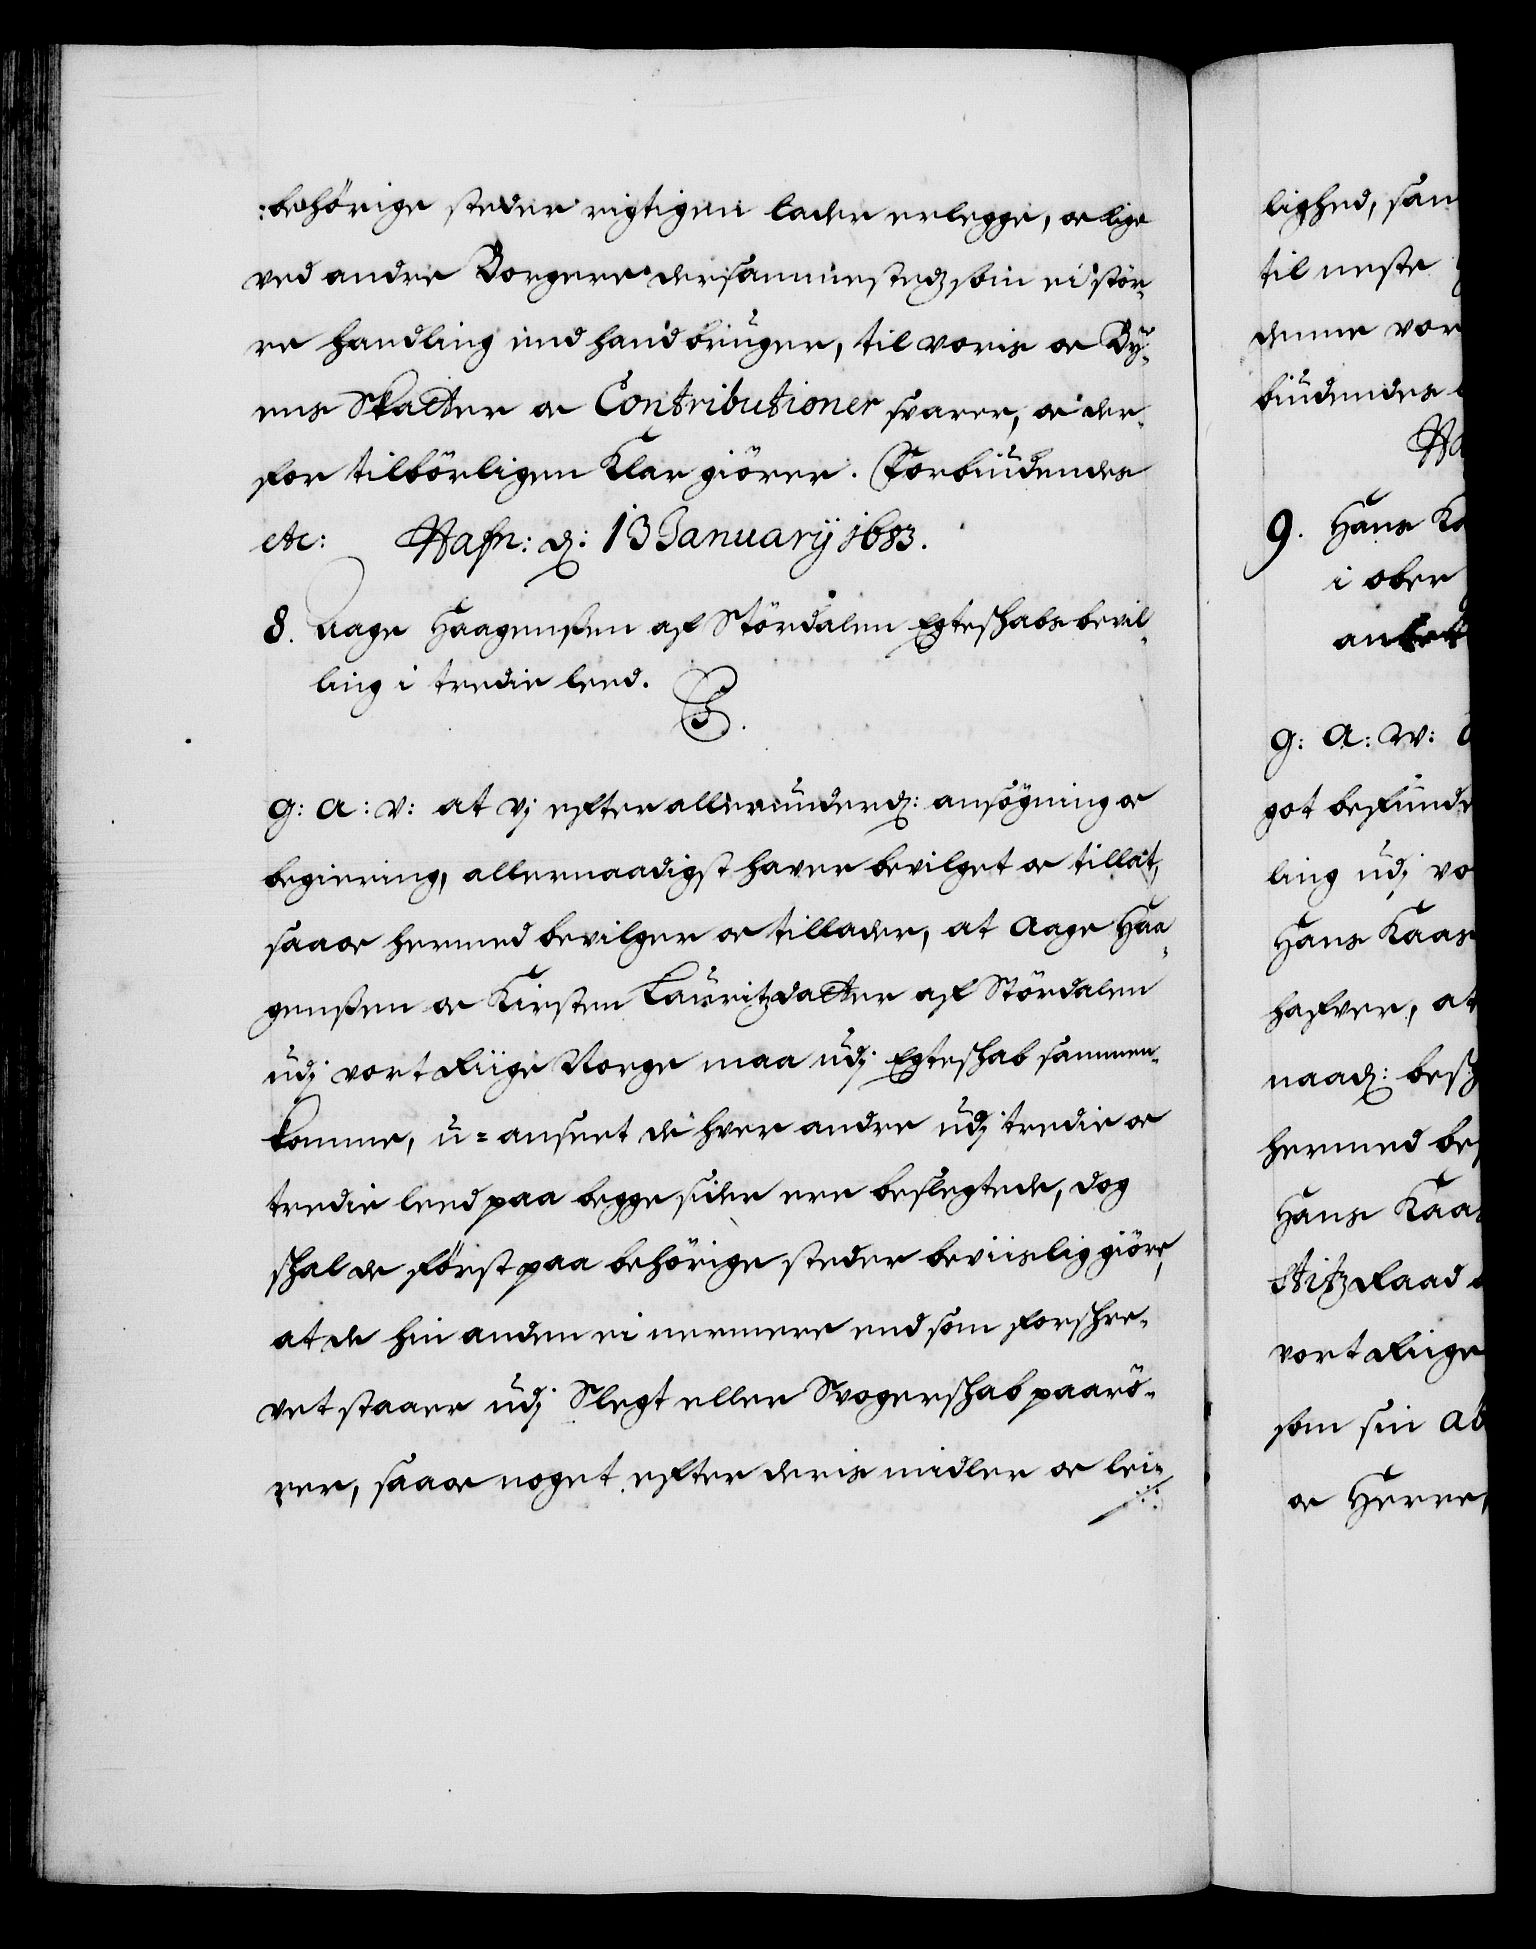 :behörige steder rigtigen lader erlegge, oc lige
ved andre Borgere dersammestedz som ei stör-
re handling end hand bruger, til voris oc By-
ens Skatter oc Contributioner svarer, oc der-
for tilbörligen Klar giörer. Forbiudendes
etc: Hafn: d: 13 Januarij 1683.
8. Aage Haagenssen af Stördalen Egteskabs bevil-
ling i tredie leed.
C5.
G: A: V: at vj efter allerunderd: ansögning oc
begiering, allernaadigst haver bevilget oc tilladt,
saa oc hermed bevilger oc tillader, at Aage Haa-
genssen oc Kirsten Lauritzdatter af Stördalen
udj vort Riige Norge maa udj Egteskab sammen-
komme, u=anseet de hver andre udj tredie oc
tredie leed paa begge sider ere beslegtede, dog
skal de först paa behörige steder beviislig giöre,
at de hin anden ei nermere end som forskre-
vet staaer udj Slegt eller Svogerskab paarö-
rer, saa oc noget efter deris midler oc lei-
lighed, sam
til neste
denne vor
biudendes
Ha
9. Hans Ka
i ober
G: A: W:
got befunde
ling udj vo
Hans Kaas
hafver, at
naad: besk
hermed be
Hans Kaas
stitz Raad
vort Riige
som sin Ab
oc Herre,